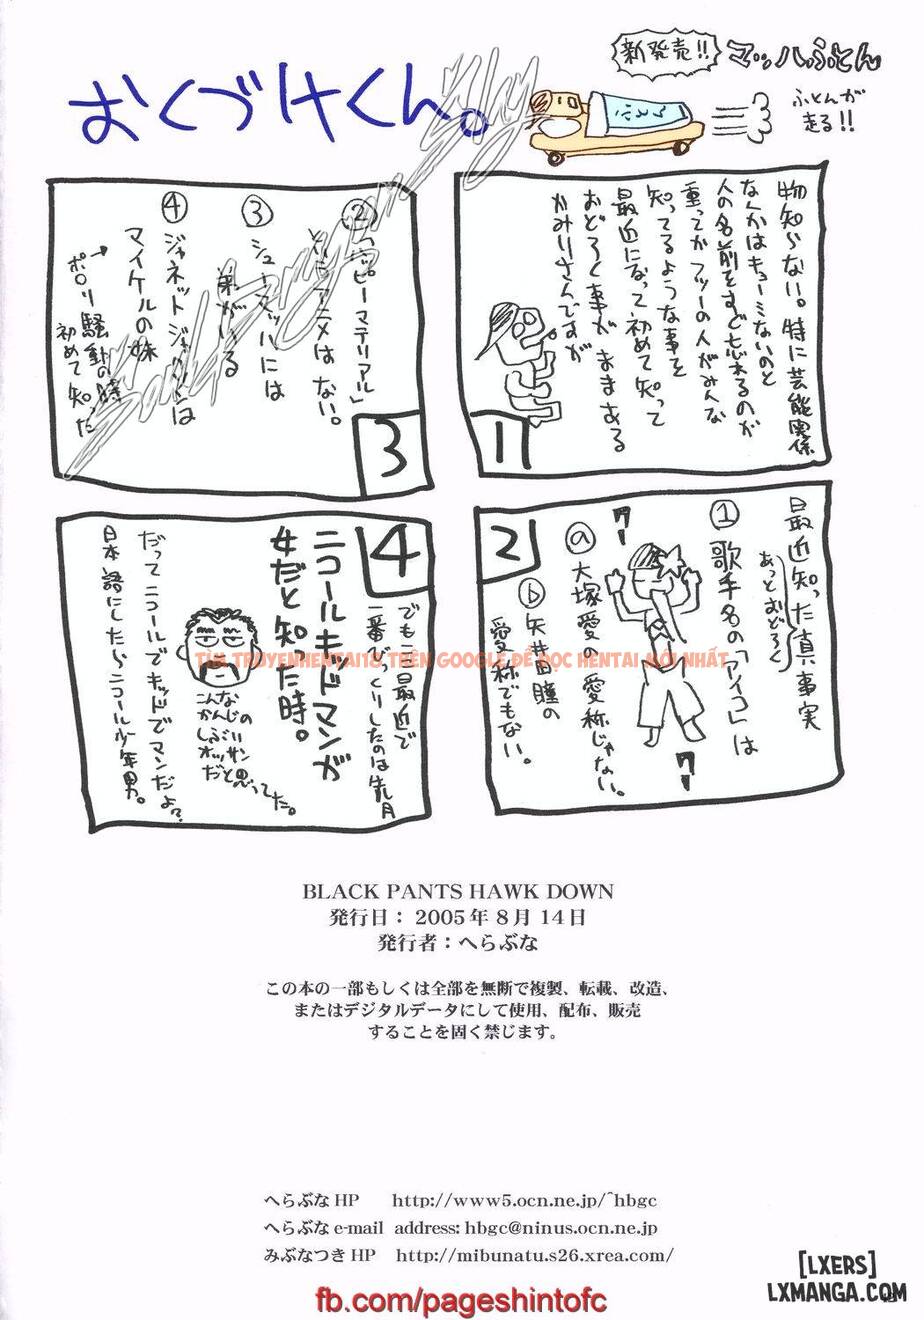 おくづけくん。
新発売!!
マッハふとん
ふとん
ふとんが
走る!!
物知らない。特に芸能関係
なんかはキョーミないのと
人の名前をすぐ忘れるのが
重ってかフツーの人がみんな
知ってるような事を
最近になって初めて知って
おどろく事が ままある
かみりさんですが
1
最近知った真事実
あっとおどろく
① 歌手名の「アイコ」は
ⓐ 大塚愛の愛称じゃない。
ⓑ 矢井田瞳の
愛称でもない。
グー
グー
2
②「ハッピーマテリアル」
アニメは ない。
③ シューマッハには
弟がいる
④ ジャネットジャクソンは
マイケルの妹
→ポロリ騒動の時
初めて知った
3
4
でも 最近で
一番びっくりしたのは先月
ニコールキッドマンが
女だと知った時。
こんな
かんじの
しぶい
オッサン
だと思ってた。
だって ニコールでキッドでマンだよ?
日本語にしたらニコール少年男。
TÌM TRUYENHENTAI18 TRÊN GOOGLE ĐỂ ĐỌC HENTAI MỚI NHẤT
BLACK PANTS HAWK DOWN
発行日： 2005年 8月 14日
発行者：へらぶな
この本の一部もしくは全部を無断で複製、転載、改造、
またはデジタルデータにして使用、配布、販売
することを固く禁じます。
へらぶな HP http://www5.ocn.ne.jp/~hbgc
へらぶな e-mail address: hbgc@ninus.ocn.ne.jp
みぶなつき HP http://mibunatu.s26.xrea.com/
[LXERS]
LXMANGA.COM
fb.com/pageshintofc